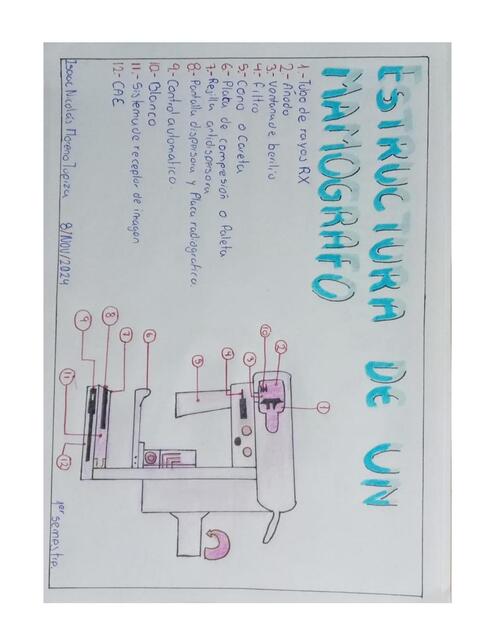 ESTRUCTURA DE UN
MAMOGRAFO
1.- Tubo de rayos RX
2.- Ánodo
3.- Ventana de berilio
4.- filtro
5.- Cono o Careta
6.- Placa de compresión o Paleta
7.- Rejilla antidispersora
8.- Pantalla dispersora y Placa radiografica.
9.- Control automatico
10.- Blanco
11.- Sistema de receptor de imagen
12.- CAE
Isaac Nicolás Moreno Tupiza 8/Nov/2024
1er semestre.
1
2
10
3
4
5
6
7
8
9
11
12